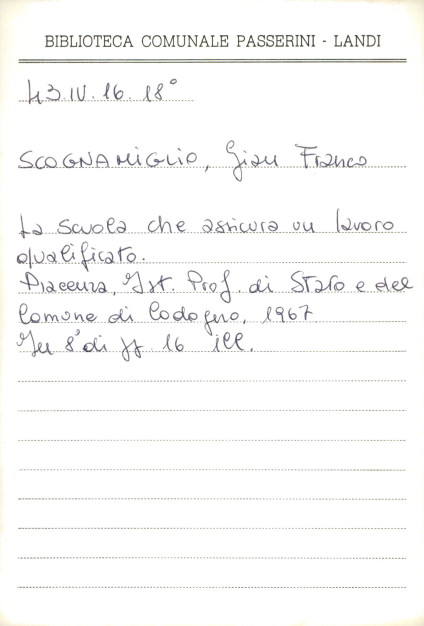 BIBLIOTECA COMUNALE PASSERINI - LANDI
43.IV.16.18°
SCOGNAMIGLIO, Gian Franco
La scuola che assicura un lavoro
qualificato.
Piacenza, Ist. Prof. di Stato e del
Comune di Codogno, 1967
In 8° di pp. 16 ill.